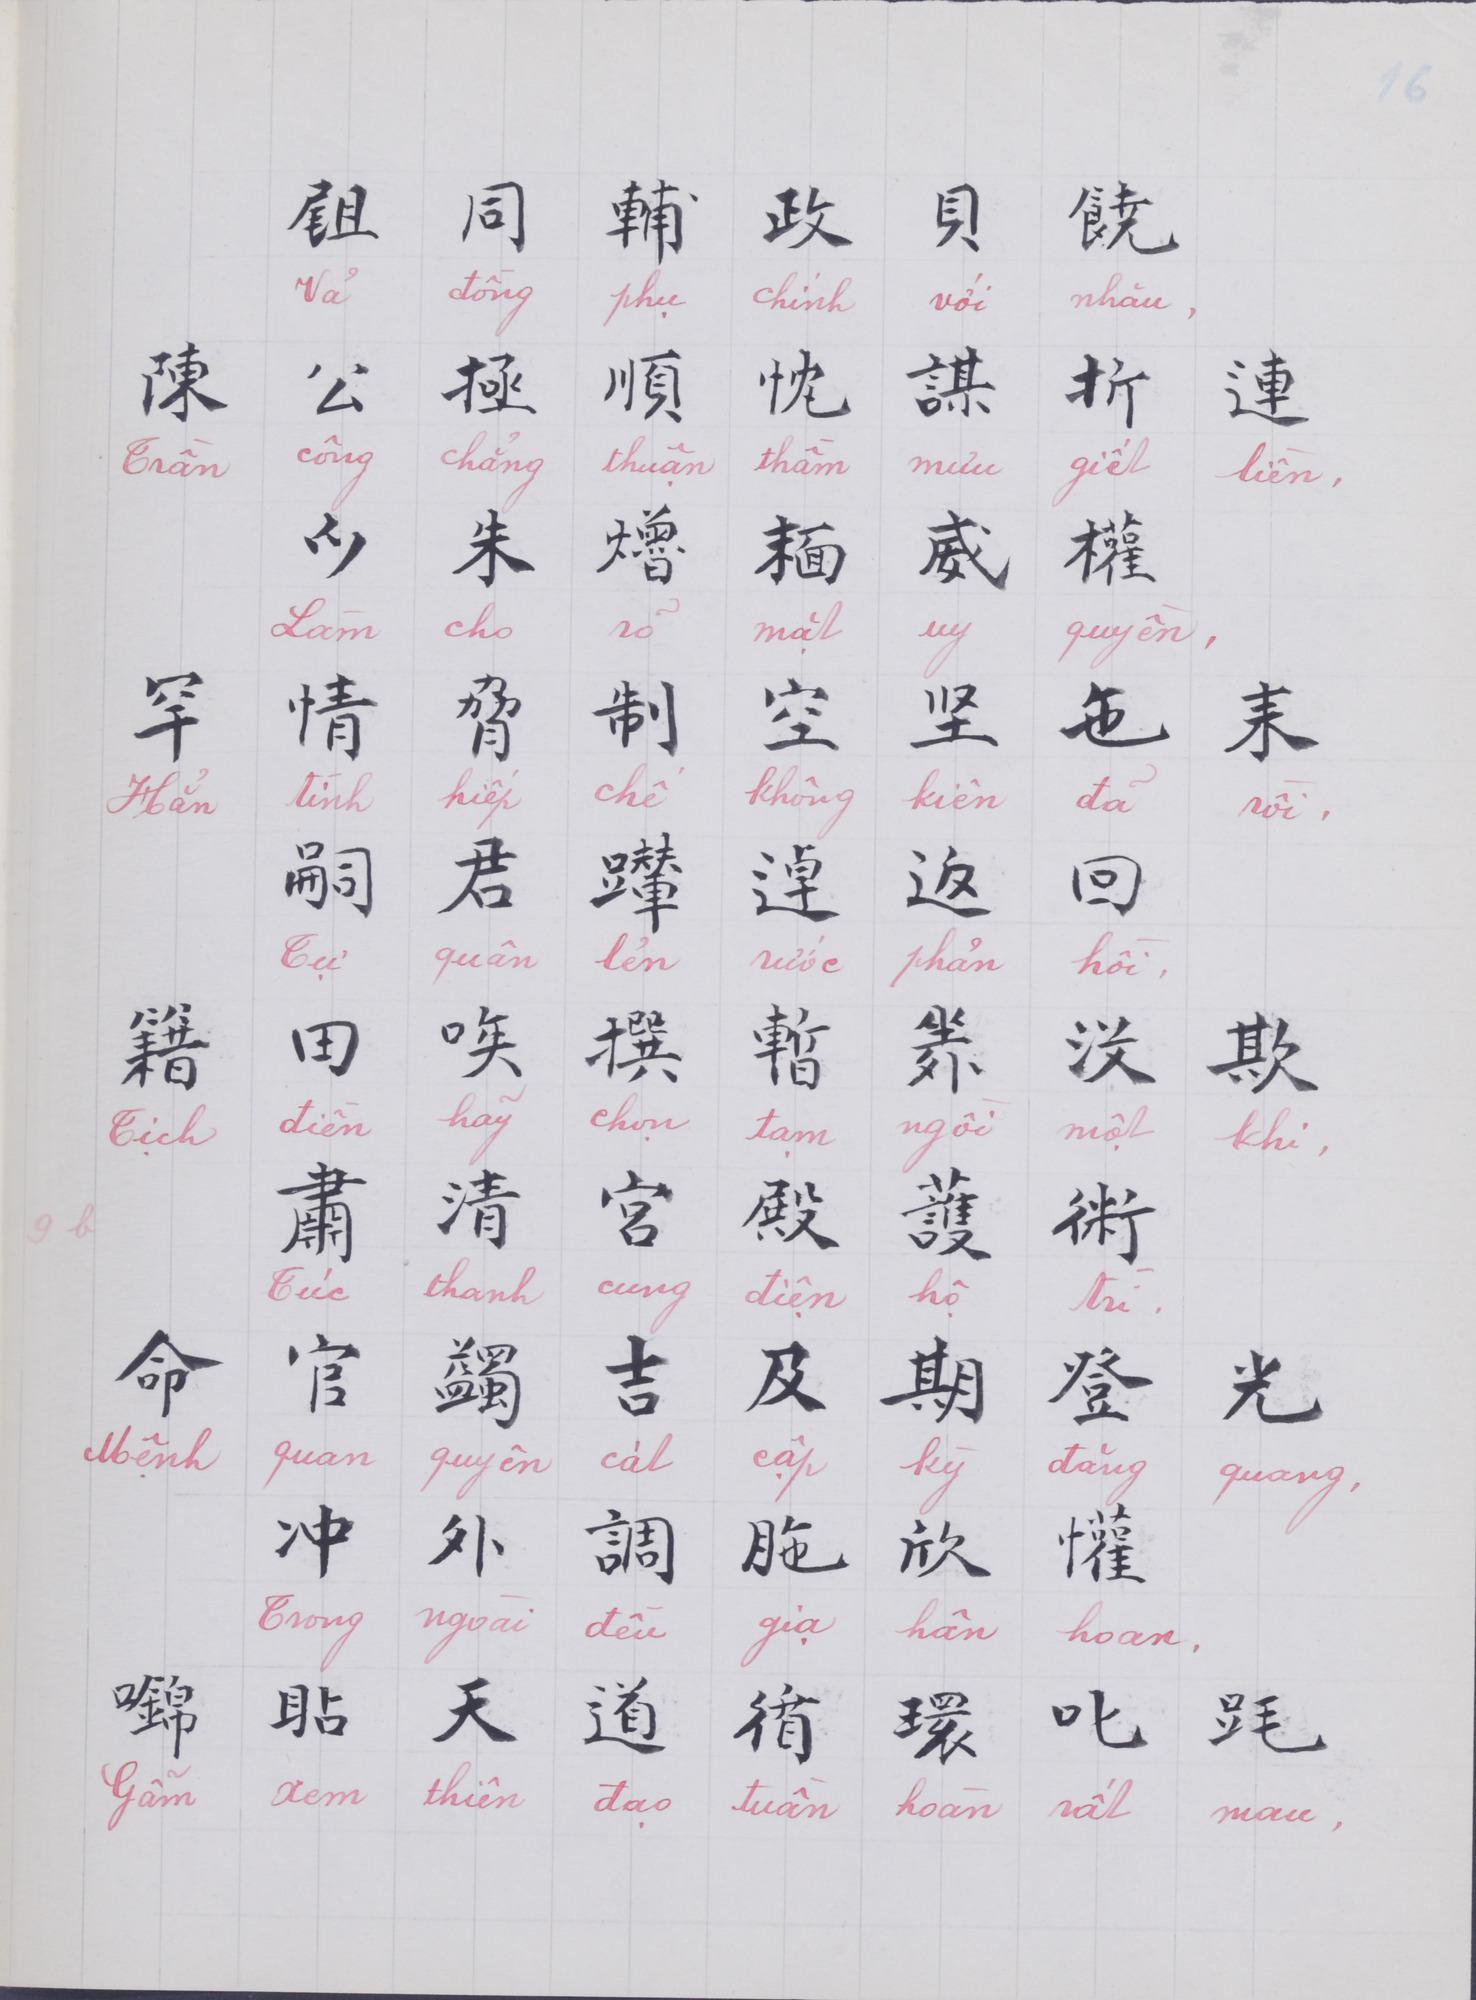 16
䣜 同 輔 政 貝 饒
Vả đồng phụ chính với nhau,
陳 公 極 順 忱 謀 折 連
Trần công chẳng thuận thầm mưu giết liền,
朱 威 權
Làm cho rõ mặt uy quyền,
罕 情 脅 制 空 坚 㐌 耒
Hẳn tình hiếp chế không kiên đã rồi,
嗣 君 返 回
Tự quân lẻn rước phản hồi,
籍 田 唉 撰 暫 欺
Tịch điền hãy chọn tạm ngồi một khi,
肅 清 宮 殿 護
Túc thanh cung điện hộ trì,
命 官 蠲 吉 及 期 登 光
9 b
Mệnh quan quyên cát cập kỳ đăng quang,
冲 外 調 欣 懽
Trong ngoài đều giạ hân hoan,
貼 天 道 循 環 叱
Gẫm xem thiên đạo tuần hoàn rất mau,